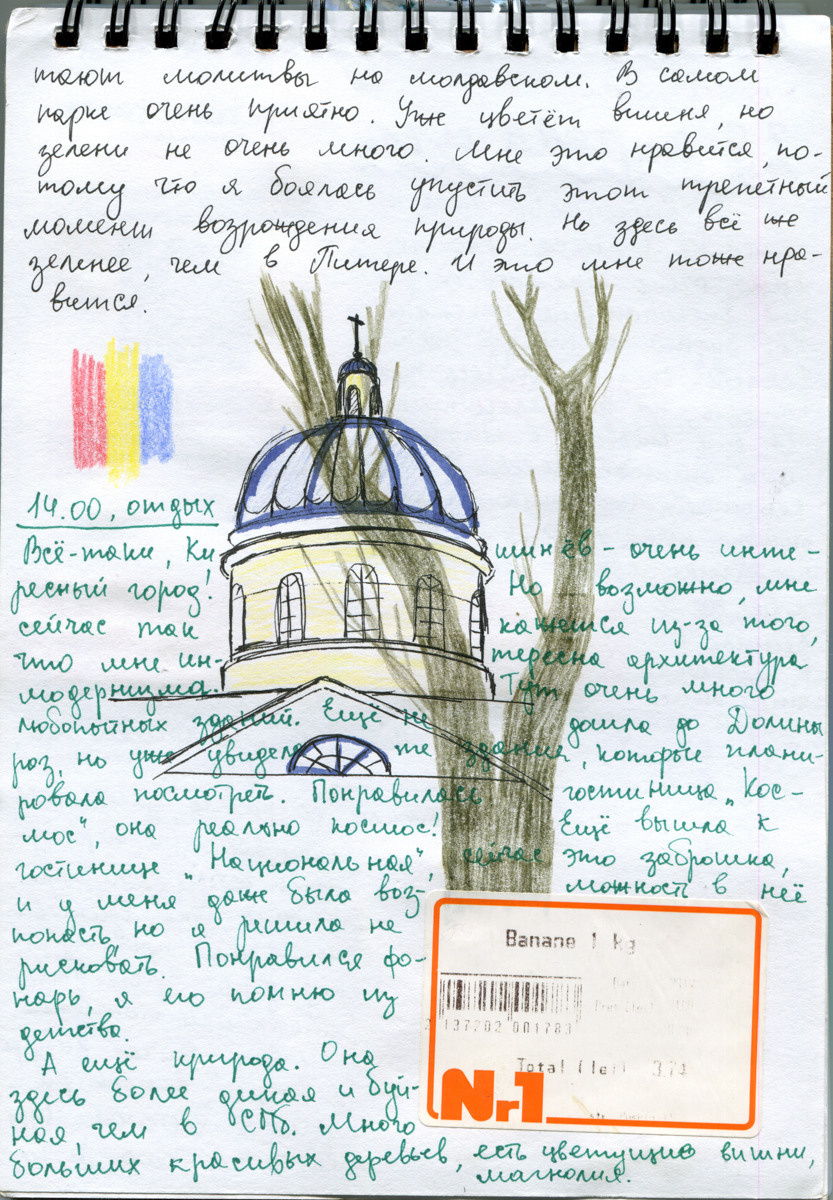 тают молитвы на молдавском. В самом
парке очень приятно. Уже цветёт вишня, но
зелени не очень много. Мне это нравится, по-
тому что я боялась упустить этот трепетный
момент возрождения природы. Но здесь всё же
зеленее, чем в Питере. И это мне тоже нра-
вится.
14.00, отдых
Всё-таки, Ки шинёв - очень инте-
ресный город! Но возможно, мне
сейчас так кажется из-за того,
что мне ин- тересна архитектура
модернизма. Тут очень много
любопытных зданий. Ещё не дошла до Долины
роз, но уже увидела те здания, которые плани-
ровала посмотреть. Понравилась гостиница „Кос-
мос", она реально космос! Ещё вышла к
гостинице „Национальная", сейчас это заброшка,
и у меня даже была воз- можность в неё
попасть, но я решила не
рисковать. Понравился фо-
нарь, я его помню из
детства.
А ещё природа. Она
здесь более дикая и буй-
ная, чем в СПб. Много
больших красивых деревьев, есть цветущие вишни,
магнолия.
Banane 1 kg
137202 001783
Total (lei) 3.74
Nr1